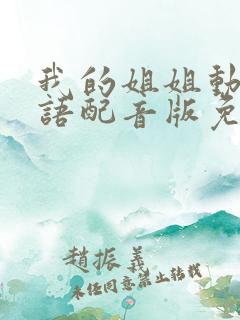 我的姐姐動
語配音版免
趙振義
未任同意禁止转载